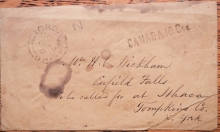 CANADA 10 Cts
Mrs H. C. Wickham
Enfield Falls
To be called for at Ithaca
Tompkins Co.
N. York